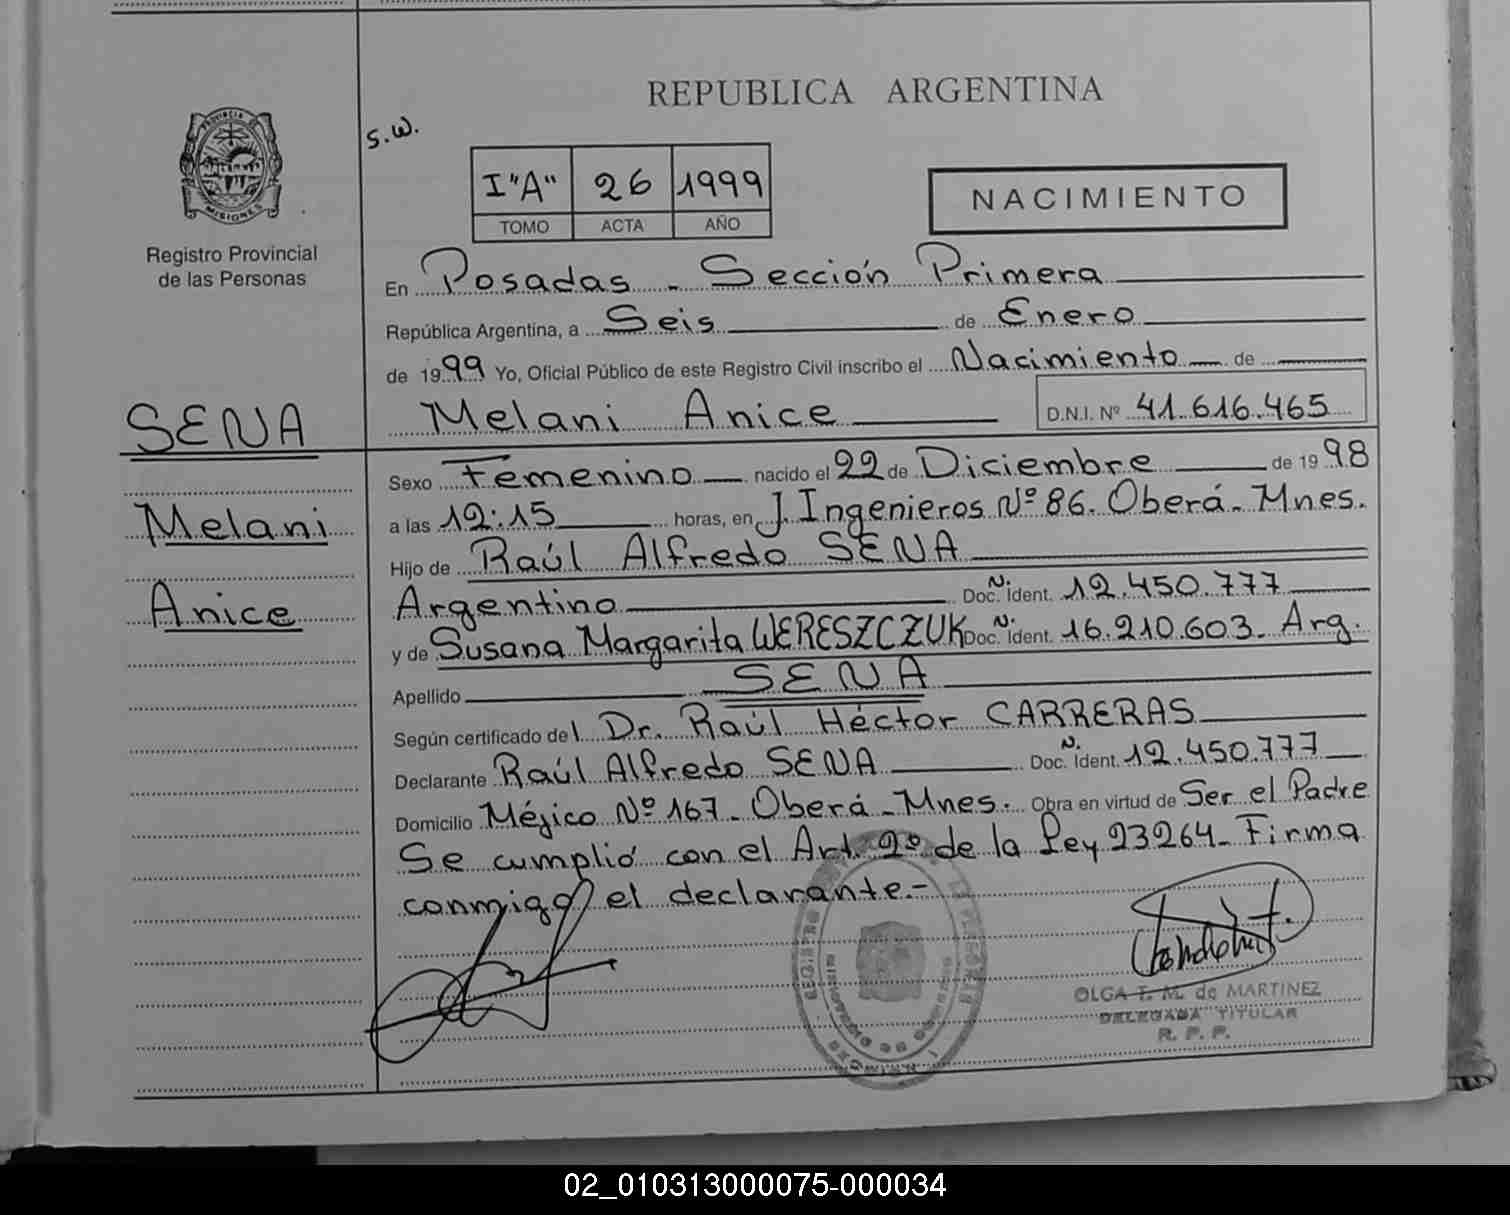 REPUBLICA ARGENTINA
PROVINCIA DE
MISIONES
Registro Provincial
de las Personas
S.W.
I"A" 26 1999
TOMO ACTA AÑO
NACIMIENTO
En Posadas - Sección Primera
República Argentina, a Seis de Enero
de 1999 Yo, Oficial Público de este Registro Civil inscribo el Nacimiento de
Melani Anice D.N.I. Nº 41.616.465
SENA
Melani
Anice
Sexo Femenino nacido el 22 de Diciembre de 1998
a las 12:15 horas, en J. Ingenieros Nº 86. Oberá - Mnes.
Hijo de Raúl Alfredo SENA
Argentino Doc. N. Ident. 12.450.777
y de Susana Margarita WERESZCZUK Doc. N. Ident. 16.210.603 - Arg.
Apellido SENA
Según certificado del Dr. Raúl Héctor CARRERAS
Declarante Raúl Alfredo SENA Doc. N. Ident. 12.450.777
Domicilio Méjico Nº 167 - Oberá - Mnes. Obra en virtud de Ser el Padre
Se cumplió con el Art. 2º de la Ley 23264 - Firma
conmigo el declarante.-
OLGA T. M. de MARTINEZ
DELEGADA TITULAR
R. P. P.
02_010313000075-000034